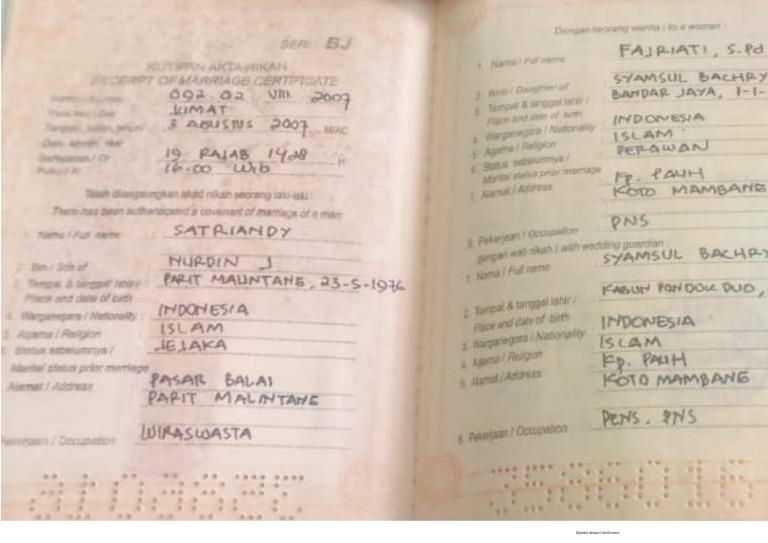 SERI BJ
KUTIPAN AKTA NIKAH
EXCERPT OF MARRIAGE CERTIFICATE
092 02 VIII 2007
JUMAT
3 AGUSTUS 2007 M/AC
19 RAJAB 1428 H
16.00 WIB
Telah dilangsungkan akad nikah seorang laki-laki :
There has been authenticated a covenant of marriage of a man:
1. Nama / Full name : SATRIANDY
2. Bin / Son of NURDIN J
3. Tempat & tanggal lahir / PARIT MALINTANG, 23-5-1976
Place and date of birth
4. Warganegara / Nationality : INDONESIA
5. Agama / Religion : ISLAM
6. Status sebelumnya / JEJAKA
Marital status prior marriage
Alamat / Address PASAR BALAI
PARIT MALINTANG
Pekerjaan / Occupation WIRASWASTA
Dengan seorang wanita / to a woman :
1. Nama / Full name FAJRIATI, S.Pd
2. Binti / Daughter of SYAMSUL BACHRY
3. Tempat & tanggal lahir / BANDAR JAYA, 1-1-
Place and date of birth
4. Warganegara / Nationality INDONESIA
5. Agama / Religion ISLAM
6. Status sebelumnya / PERAWAN
Marital status prior marriage
7. Alamat / Address Kp. PAUH
KOTO MAMBANG
8. Pekerjaan / Occupation PNS
dengan wali nikah / with wedding guardian :
1. Nama / Full name SYAMSUL BACHRY
2. Tempat & tanggal lahir / KABUN PONDOK DUO,
Place and date of birth
3. Warganegara / Nationality INDONESIA
4. Agama / Religion ISLAM
5. Alamat / Address Kp. PAUH
KOTO MAMBANG
6. Pekerjaan / Occupation PENS. PNS